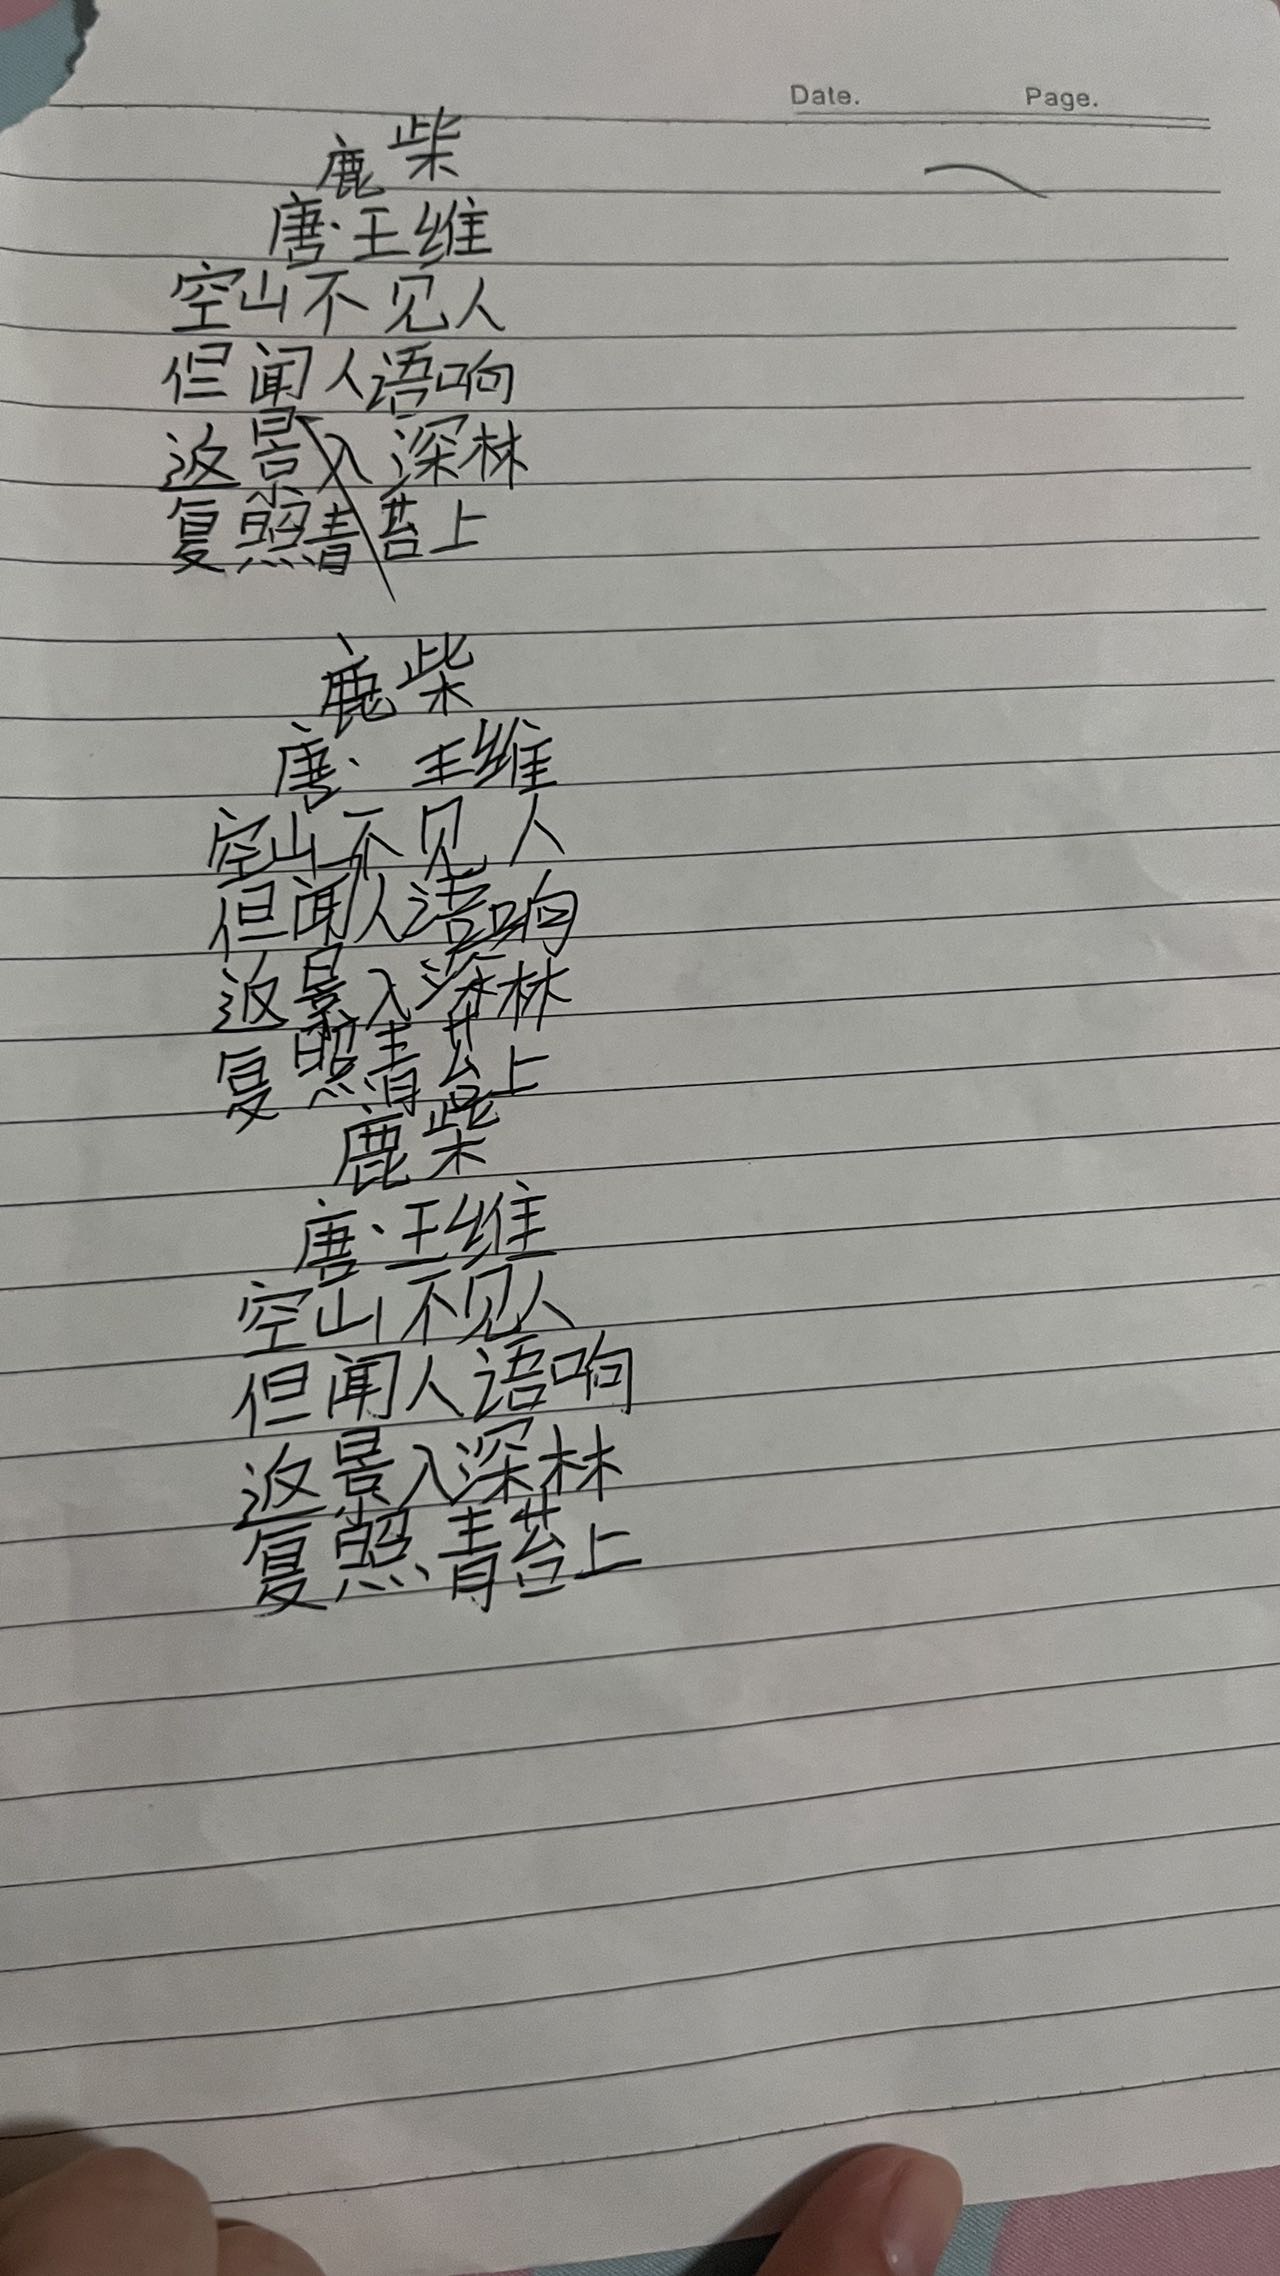 Date. Page.
鹿柴
唐·王维
空山不见人
但闻人语响
返景入深林
复照青苔上
鹿柴
唐·王维
空山不见人
但闻人语响
返景入深林
复照青苔上
鹿柴
唐·王维
空山不见人
但闻人语响
返景入深林
复照青苔上